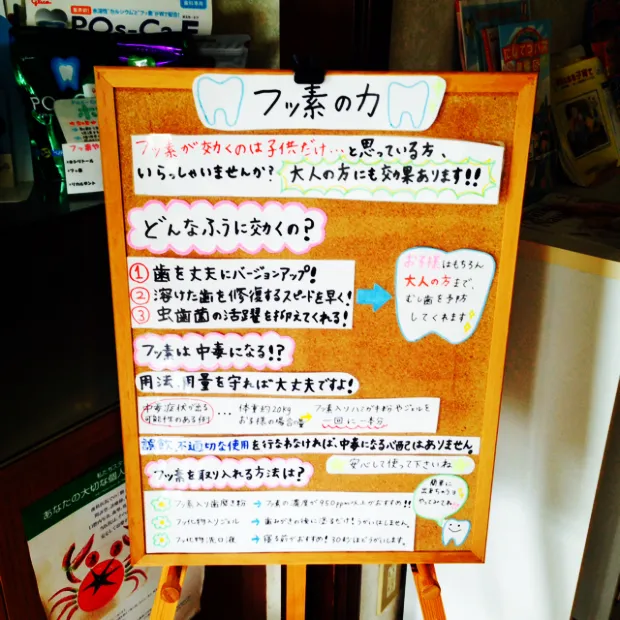 POs-Ca F
フッ素の力
フッ素が効くのは子供だけ…と思っている方、
いらっしゃいませんか? 大人の方にも効果あります!!
どんなふうに効くの?
① 歯を丈夫にバージョンアップ!
② 溶けた歯を修復するスピードを早く!
③ 虫歯菌の活躍を抑えてくれる!
お子様はもちろん
大人の方まで、
むし歯を予防
してくれます
フッ素は中毒になる!?
用法、用量を守れば大丈夫ですよ!
中毒症状が出る
可能性のある例
… 体重約20kg
お子様の場合
フッ素入りハミガキ粉やジェルを
一回に一本分
誤飲、不適切な使用を行なわなければ、中毒になる心配はありません。
安心して使って下さいね
フッ素を取り入れる方法は?
フッ素入り歯磨き粉 → フッ素の濃度が950ppm以上がおすすめ!!
フッ化物入りジェル → 歯みがきの後に塗るだけ!うがいはしません。
フッ化物洗口液 → 寝る前がおすすめ! 30秒ほどうがいします。
簡単に
出来ちゃうよ
やってみてね…
あなたの大切な